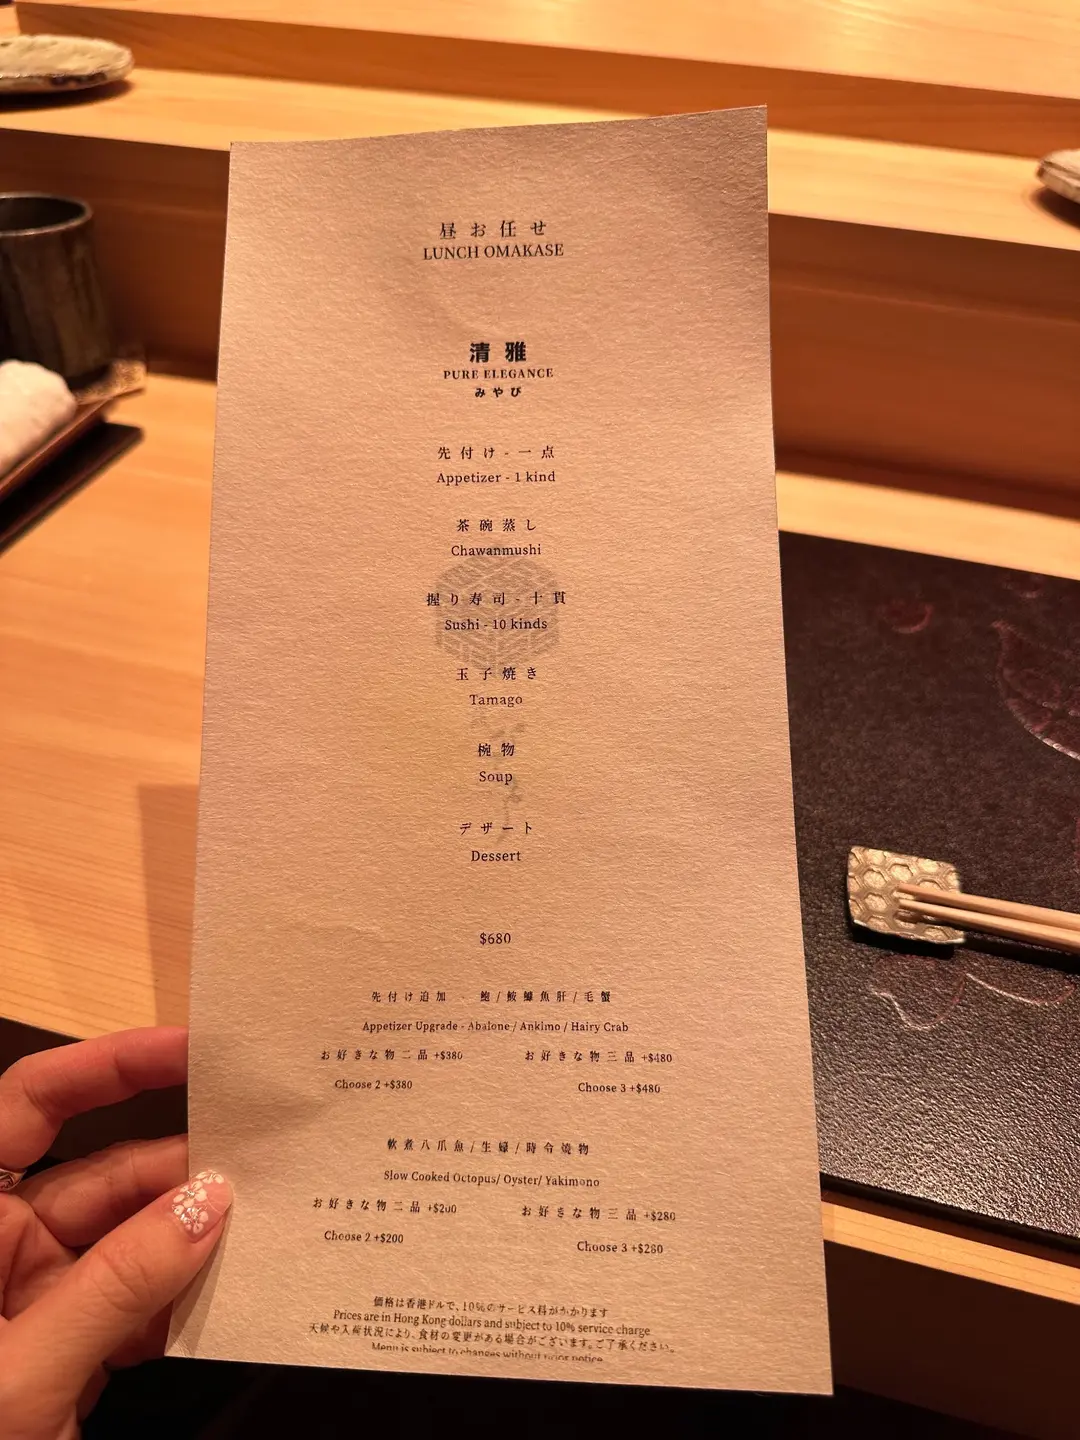 昼お任せ
LUNCH OMAKASE
清雅
PURE ELEGANCE
みやび
先付け - 一点
Appetizer - 1 kind
茶碗蒸し
Chawanmushi
握り寿司 - 十貫
Sushi - 10 kinds
玉子焼き
Tamago
椀物
Soup
デザート
Dessert
$680
先付け追加 - 鮑/鮟鱇魚肝/毛蟹
Appetizer Upgrade - Abalone / Ankimo / Hairy Crab
お好きな物二品 +$380 お好きな物三品 +$480
Choose 2 +$380 Choose 3 +$480
軟煮八爪魚/生蠔/時令燒物
Slow Cooked Octopus/ Oyster/ Yakimono
お好きな物二品 +$200 お好きな物三品 +$280
Choose 2 +$200 Choose 3 +$280
価格は香港ドルで、10%のサービス料がかかります
Prices are in Hong Kong dollars and subject to 10% service charge
天候や入荷状況により、食材の変更がある場合がございます。ご了承ください。
Menu is subject to changes without prior notice